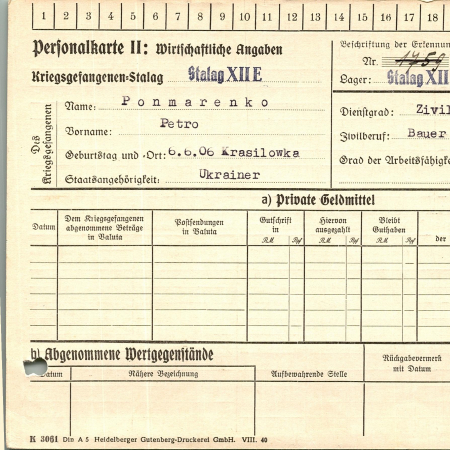 1 2 3 4 5 6 7 8 9 10 11 12 13 14 15 16 17 18
Personalkarte II: Wirtschaftliche Angaben
Kriegsgefangenen-Stalag Stalag XII E
Beschriftung der Erkennun
Nr. 1759
Lager: Stalag XII
Des Kriegsgefangenen
Name: Ponmarenko
Vorname: Petro
Geburtstag und -Ort: 6.6.06 Krasilowka
Staatsangehörigkeit: Ukrainer
Dienstgrad: Zivil
Zivilberuf: Bauer
Grad der Arbeitsfähigke
a) Private Geldmittel
Datum
Dem Kriegsgefangenen
abgenommene Beträge
in Valuta
Postsendungen
in Valuta
Gutschrift
in
RM Rpf
Hiervon
ausgezahlt
RM Rpf
Bleibt
Guthaben
RM Rpf
der
b) Abgenommene Wertgegenstände
Datum
Nähere Bezeichnung
Aufbewahrende Stelle
Rückgabevermerk
mit Datum
K 3061 Din A 5 Heidelberger Gutenberg-Druckerei GmbH. VIII. 40